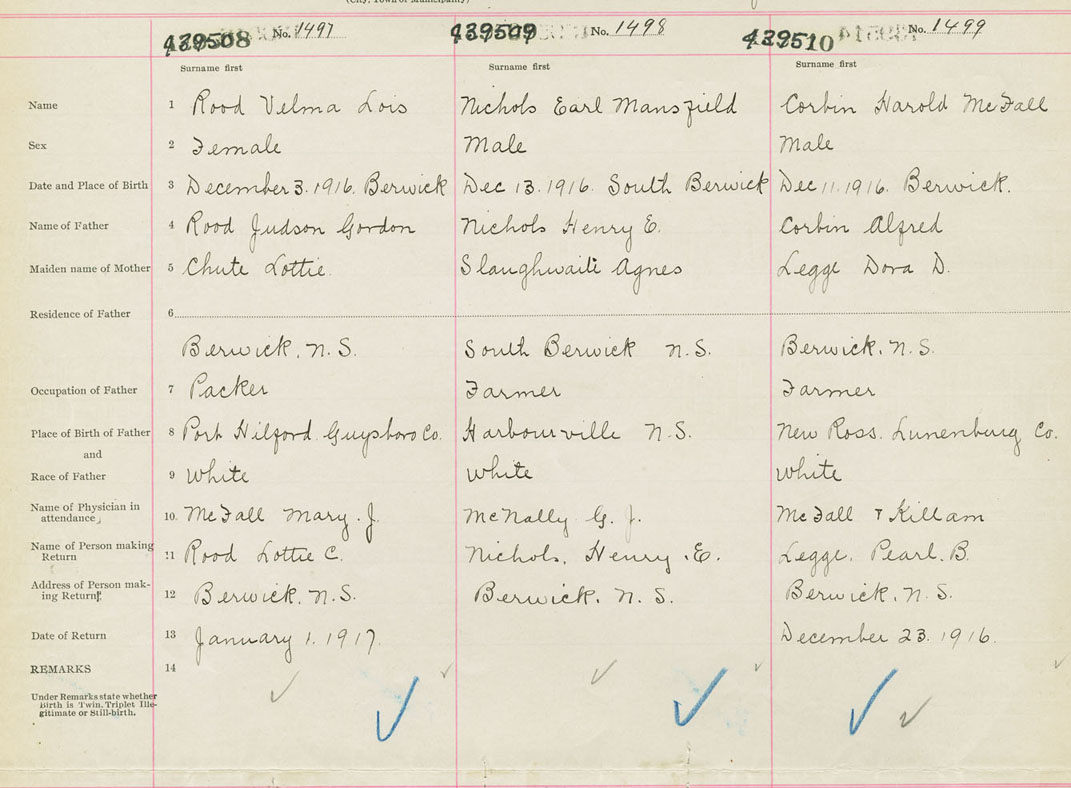 (City, Town or Municipality)
439508 No. 1497 439509 No. 1498 439510 No. 1499
Surname first Surname first Surname first
Name 1 Rood Velma Lois Nichols Earl Mansfield Corbin Harold McFall
Sex 2 Female Male Male
Date and Place of Birth 3 December 3. 1916. Berwick Dec 13. 1916. South Berwick Dec 11. 1916. Berwick.
Name of Father 4 Rood Judson Gordon Nichols Henry E. Corbin Alfred
Maiden name of Mother 5 Chute Lottie. Slaughwaite Agnes Legge Dora D.
Residence of Father 6
Berwick, N.S. South Berwick N.S. Berwick, N.S.
Occupation of Father 7 Packer Farmer Farmer
Place of Birth of Father 8 Port Hilford. Guysboro Co. Harbourville N.S. New Ross. Lunenburg Co.
and
Race of Father 9 White White White
Name of Physician in attendance 10. McFall Mary. J. McNally G. J. McFall & Killam
Name of Person making Return 11 Rood Lottie C. Nichols, Henry. E. Legge, Pearl. B.
Address of Person making Return 12 Berwick, N.S. Berwick, N.S. Berwick, N.S.
Date of Return 13 January 1. 1917. December 23. 1916.
REMARKS 14
Under Remarks state whether
Birth is Twin, Triplet Ille-
gitimate or Still-birth.